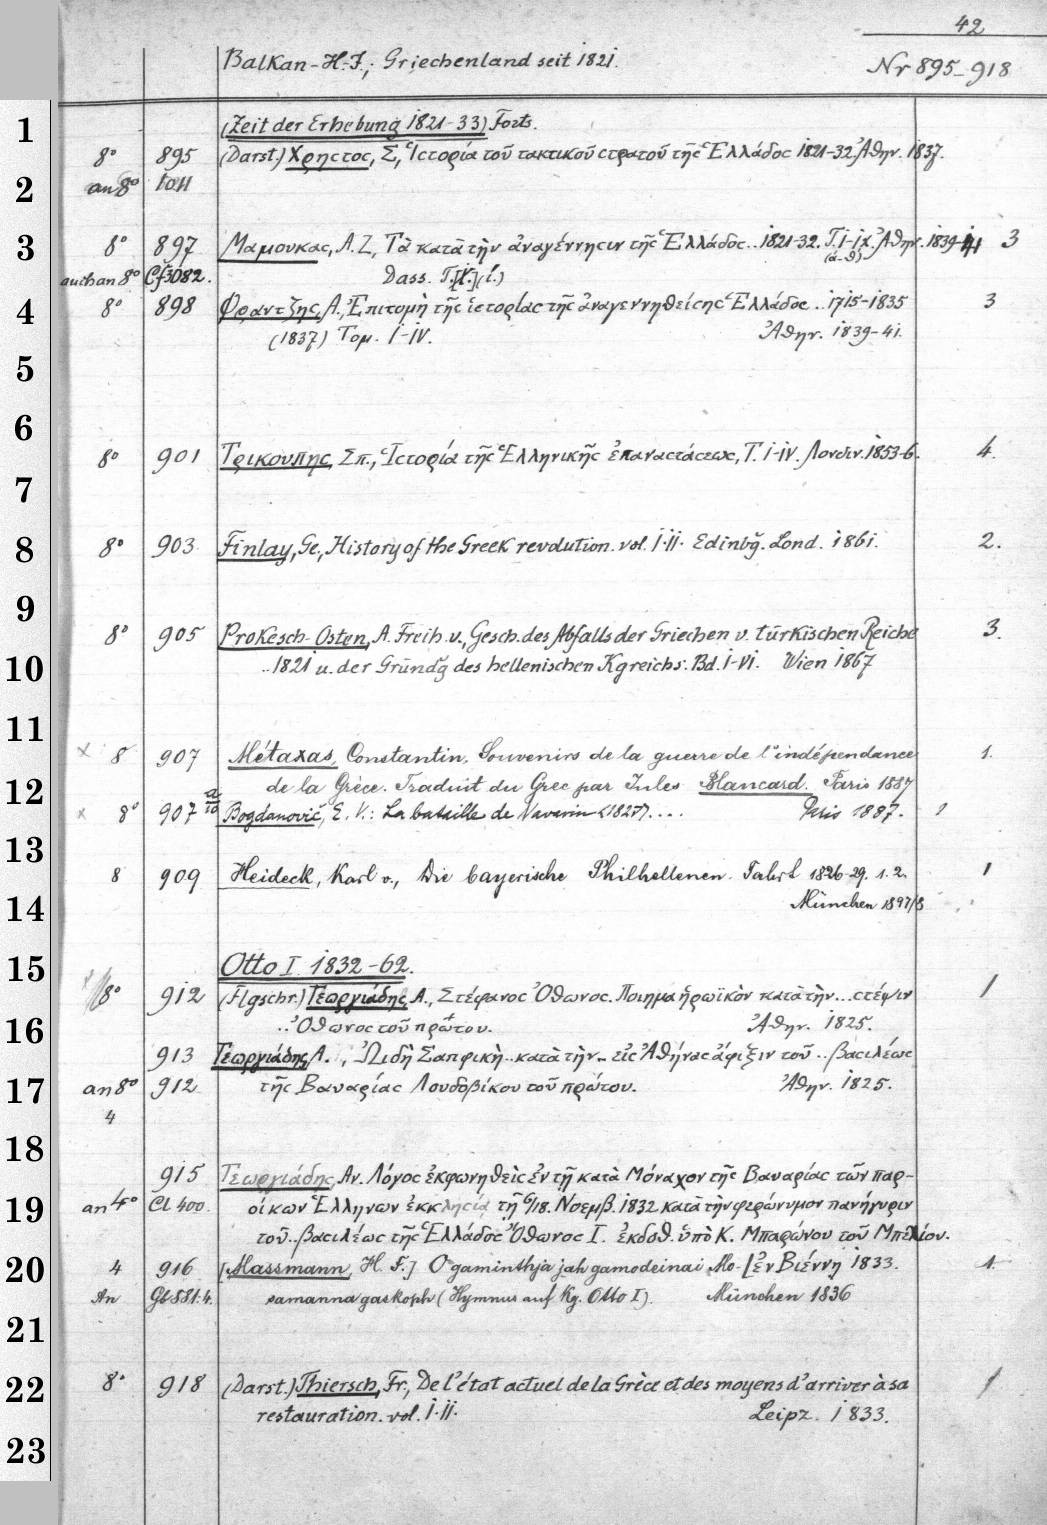 42
Balkan-H.-I., Griechenland seit 1821.
Nr 895-918
1
(Zeit der Erhebung 1821-33) Forts.
8° 895 (Darst.) Χρηϲτοϲ, Σ, Ἱϲτορία τοῦ τακτικοῦ ϲτρατοῦ τῆϲ Ἑλλάδοϲ 1821-32. Ἀθην. 1837.
2
an 8° 1011
3
8° 897 Μαμουκαϲ, Α. Ζ, Τὰ κατὰ τὴν ἀναγέννηϲιν τῆϲ Ἑλλάδοϲ.. 1821-32. T. I-IX. Ἀθην. 1839-41 3
(α-θ)
auch an 8° Cf 3082. Dass. T. [X.] (ί.)
4
8° 898 Φραντζηϲ, Α., Ἐπιτομὴ τῆϲ ἱϲτορίαϲ τῆϲ ἀναγεννηθείϲηϲ Ἑλλάδοϲ.. 1715-1835 3
(1837) Τομ. I-IV. Ἀθην. 1839-41.
5
6
8° 901 Τρικουπηϲ, Σπ., Ἱϲτορία τῆϲ Ἑλληνικῆϲ ἐπαναϲτάϲεωϲ, T. I-IV. Λονδιν. 1853-6. 4.
7
8
8° 903 Finlay, Ge., History of the Greek revolution. vol. I.II. Edinbg̃. Lond. 1861. 2.
9
8° 905 Prokesch-Osten, A. Freih. v., Gesch. des Abfalls der Griechen v. türkischen Reiche 3.
10
..1821 u. der Gründg̃ des hellenischen Kgreichs. Bd. I-VI. Wien 1867
11
x 8 907 Métaxas, Constantin, Souvenirs de la guerre de l'indépendance 1.
12
de la Grèce. Traduit du Grec par Jules Blancard. Paris 1887
x 8° 907 a/10 Bogdanovič, E. V.: La bataille de Navarin <1827>.... Paris 1887. 1
13
8 909 Heideck, Karl v., Die bayerische Philhellenen-Fahrt 1826-29. 1.2. 1
14
München 1897/8
15
Otto I 1832-62.
x 8° 912 (Flgschr.) Γεωργιάδηϲ Α., Στέφανοϲ Ὄθωνοϲ. Ποιημα ἡρωϊκὸν κατὰ τὴν...ϲτέψιν 1
16
..Ὄθωνοϲ τοῦ πρώτου. Ἀθην. 1825.
913 Γεωργιάδηϲ Α., Ὠιδὴ Σαπφικὴ.. κατὰ τὴν.. εἰϲ Ἀθήναϲ ἄφιξιν τοῦ.. βαϲιλέωϲ
17
an 8° 912 τῆϲ Βαυαρίαϲ Λουδοβίκου τοῦ πρώτου. Ἀθην. 1825.
4
18
915 Γεωργιάδηϲ, Αν. Λόγοϲ ἐκφωνηθεὶϲ ἐν τῇ κατὰ Μόναχον τῆϲ Βαυαρίαϲ τῶν παρ-
19
an 4° Cl 400. οίκων Ἑλληνων ἐκκληϲίᾳ τῇ 6/18. Νοεμβ. 1832 κατὰ τὴν φερώνυμον πανήγυριν
τοῦ.. βαϲιλέωϲ τῆϲ Ἑλλάδοϲ Ὄθωνοϲ I. ἐκδοθ. ὑπὸ Κ. Μπαρώνου τοῦ Μπελίου.
20
4 916 [Massmann, H. F.] Ogaminthja jah gamodeinai Mo- [ἐν Βιέννῃ 1833. 1.
An Gb 881.4. samanna gaskoph (Hymnus auf Kg. Otto I). München 1836
21
22
8° 918 (Darst.) Thiersch, Fr., De l'état actuel de la Grèce et des moyens d'arriver à sa 1
restauration. vol. I.II. Leipz. 1833.
23